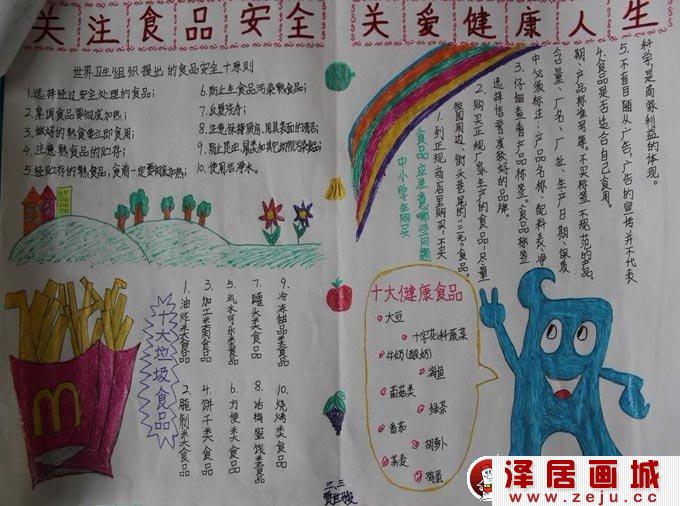 关注食品安全 关爱健康人生
世界卫生组织提出的食品安全十原则
1.选择经过安全处理的食品;
2.烹调食品要彻底加热;
3.做好的熟食要立即食用;
4.注意熟食品的贮存;
5.经贮存的熟食品,食前一定要彻底加热;
6.防止生食品污染熟食品;
7.反复洗手;
8.注意保持厨房、用具表面的清洁;
9.防止昆虫、鼠类和其它动物污染食品;
10.使用洁净水。
十大垃圾食品
1.油炸类食品
2.腌制类食品
3.加工类肉食品
4.饼干类食品
5.汽水可乐类食品
6.方便类食品
7.罐头类食品
9.冷冻甜品类食品
10.烧烤类食品
中小学生购买
食品应注意哪些问题
1.到正规商店里购买,不买
校园周边、街头巷尾的“三无”食品。
2.购买正规厂家生产的食品,尽量
选择信誉度较好的品牌。
3.仔细查看产品标签。食品标签
中必须标注:产品名称、配料表、净
含量、厂名、厂址、生产日期、保质
期、产品标准号等。不买标签不规范的产品。
4.食品是否适合自己食用。
5.不盲目随从广告,广告的宣传并不代表
科学,是商家利益的体现。
十大健康食品
大豆
十字花科蔬菜
牛奶(酸奶)
海鱼
菌菇类
绿茶
番茄
胡萝卜
荞麦
鸡蛋
三、三
泽居画城
www.zeju.cc